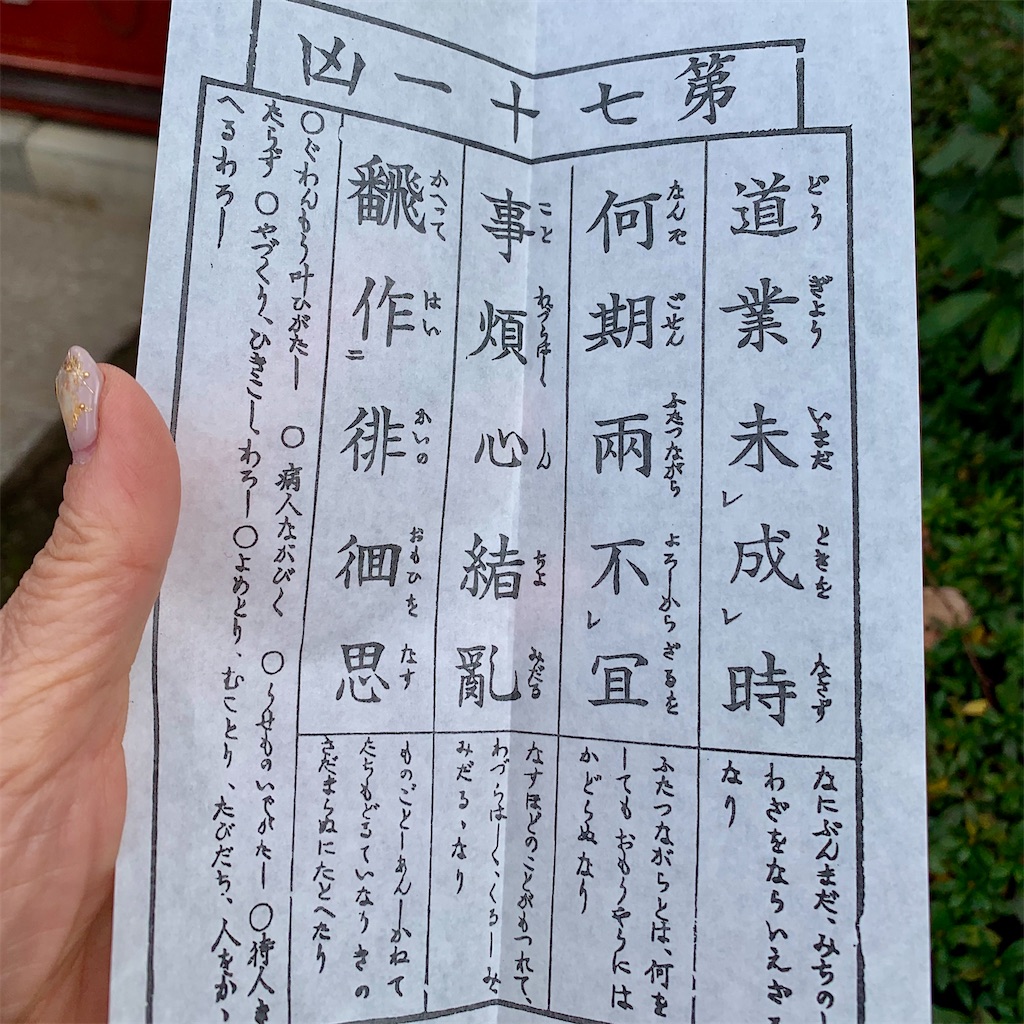 第七十一凶
道業未成時
どうぎょういまだときをなさず
なにぶんまだ、みちの
わざをならいえざ
なり
何期兩不宜
なんぞごせんふたつながらよろしからざるを
ふたつながらとは、何を
してもおもうやうには
かどらぬなり
事煩心緒亂
ことわづらはしくしんちよみだる
なすほどのことがもつれて、
わづらはしく、くるしみ
みだるゝなり
翻作徘徊思
かへってはいかいのおもひをなす
ものごとしあんしかねて
たちもどるていなりさの
さだまらぬにたとへたり
○ぐわんもう叶ひがたし ○病人ながびく ○うせものいでがたし ○待人き
たらず ○やづくり、ひきこしわろし ○よめとり、むことり、たびだち、人をかゝ
へるわろし